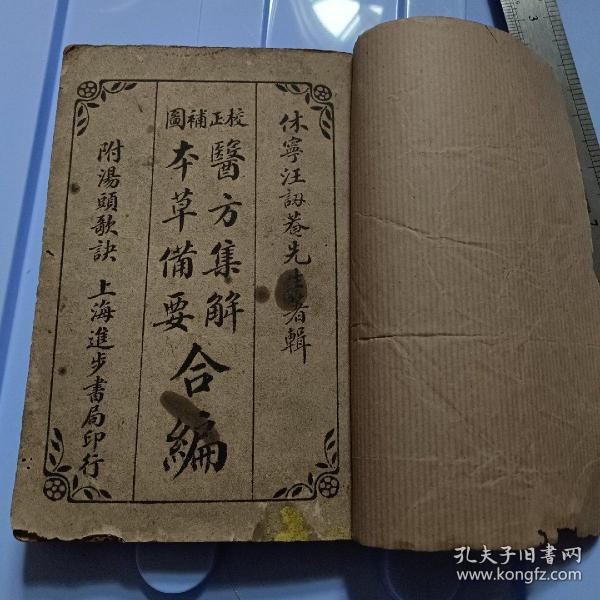 休寧汪訒菴先生著輯
校正補圖
醫方集解
本草備要
合編
附湯頭歌訣
上海進步書局印行
孔夫子旧书网
www.kongfz.com